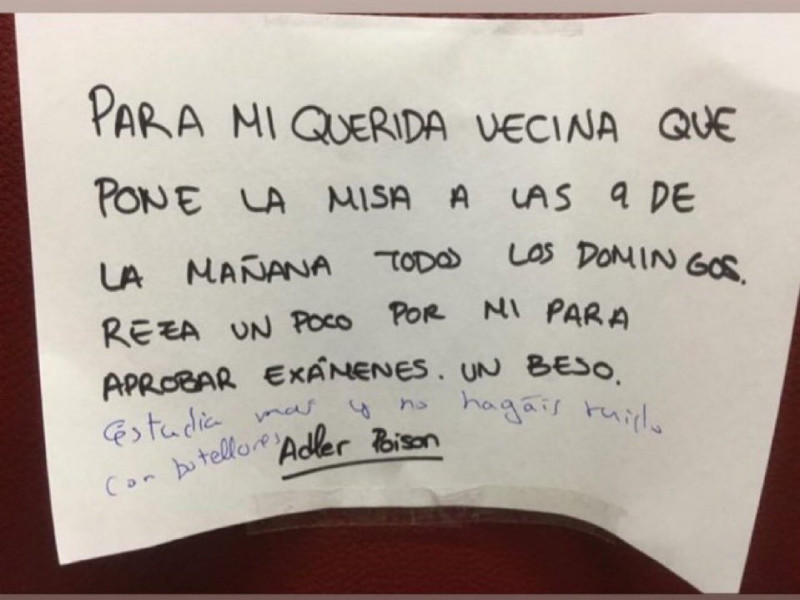 PARA MI QUERIDA VECINA QUE
PONE LA MISA A LAS 9 DE
LA MAÑANA TODOS LOS DOMINGOS.
REZA UN POCO POR MI PARA
APROBAR EXÁMENES. UN BESO.
Estudia mas y no hagáis ruido
con botellones
Adler Poison